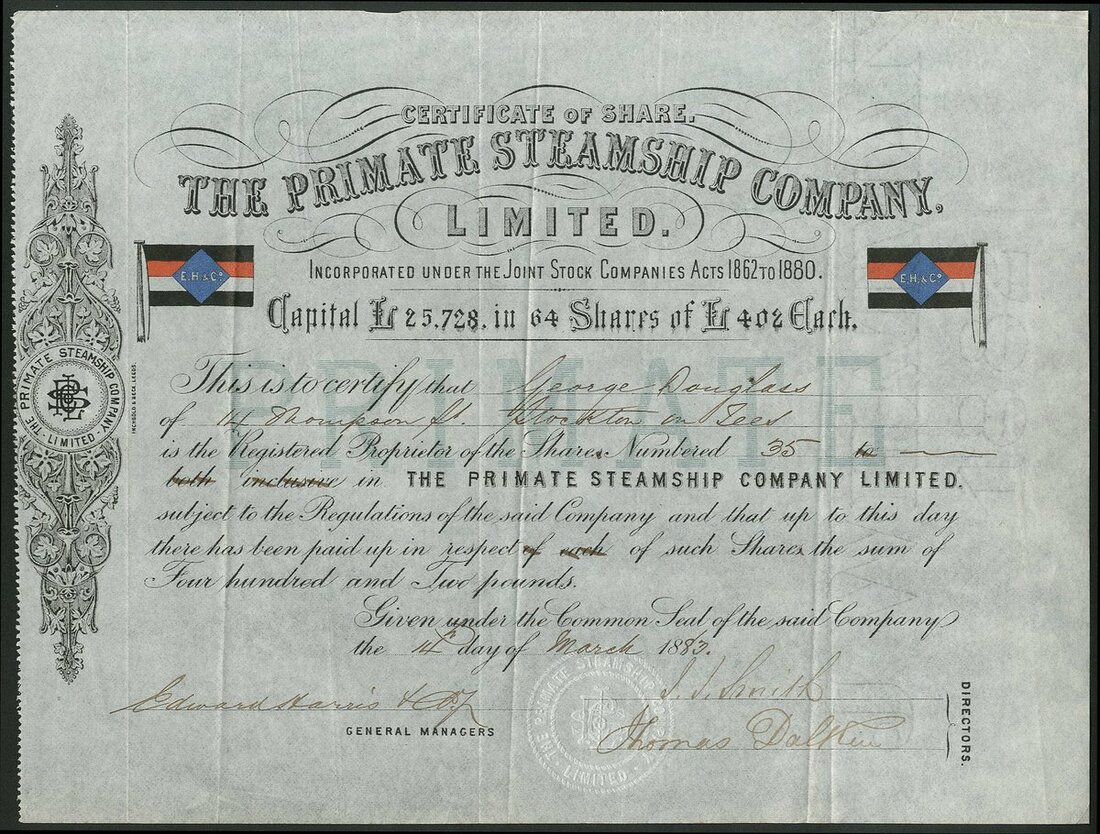 CERTIFICATE OF SHARE.
THE PRIMATE STEAMSHIP COMPANY,
LIMITED.
INCORPORATED UNDER THE JOINT STOCK COMPANIES ACTS 1862 TO 1880.
E.H.&Co.
E.H.&Co.
Capital £25,728. in 64 Shares of £402 Each.
PRIMATE
This is to certify that George Douglass
of 14 Thompson St. Stockton on Tees
is the Registered Proprietor of the Shares Numbered 35 to
both inclusive in THE PRIMATE STEAMSHIP COMPANY LIMITED.
subject to the Regulations of the said Company and that up to this day
there has been paid up in respect of each of such Shares the sum of
Four hundred and Two pounds.
Given under the Common Seal of the said Company
the 14th day of March 1883.
Edward Harris & Co
GENERAL MANAGERS
J. J. Smith
Thomas Dalkin
DIRECTORS.
THE PRIMATE STEAMSHIP COMPANY LIMITED
THE PRIMATE STEAMSHIP COMPANY
LIMITED
INCHBOLD & BECK, LEEDS.